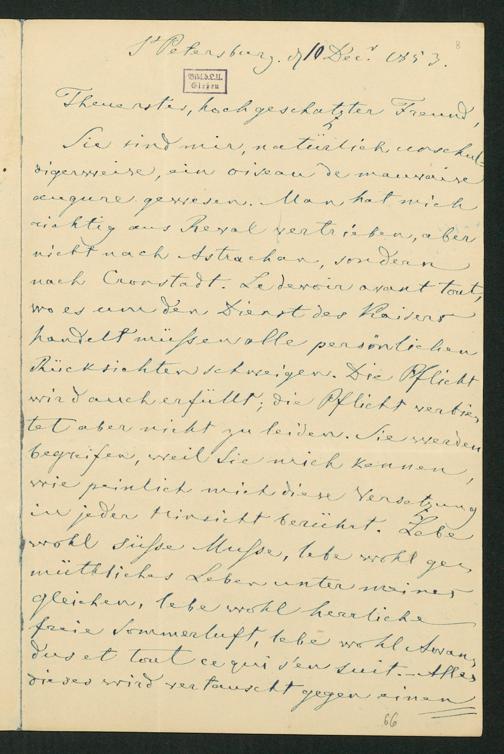 8
St Petersburg. d 10 Decr 1853.
Bibl. d. L. U.
Gießen
Theuerster, hochgeschatzter Freund,
Sie sind mir, natürlich unschul-
digerweise, ein oiseau de mauvaise
augure gewesen. Man hat mich
richtig aus Reval vertrieben, aber
nicht nach Astrachan, sondern
nach Cronstadt. Le devoir avant tout,
wo es um den Dienst des Kaisers
handelt müssen alle persönlichen
Rücksichten schweigen. Die Pflicht
wird auch erfüllt; die Pflicht verbie-
tet aber nicht zu leiden. Sie werden
begreifen, weil Sie mich kennen,
wie peinlich mich diese Versetzung
in jeder Hinsicht berührt. Lebe
wohl süsse Musse, lebe wohl ge-
müthliches Leben unter meines
gleichen, lebe wohl herrliche
freie Sommerluft, lebe wohl
et tout ce qui s'en suit. Alles
dieses wird vertauscht gegen einen
66